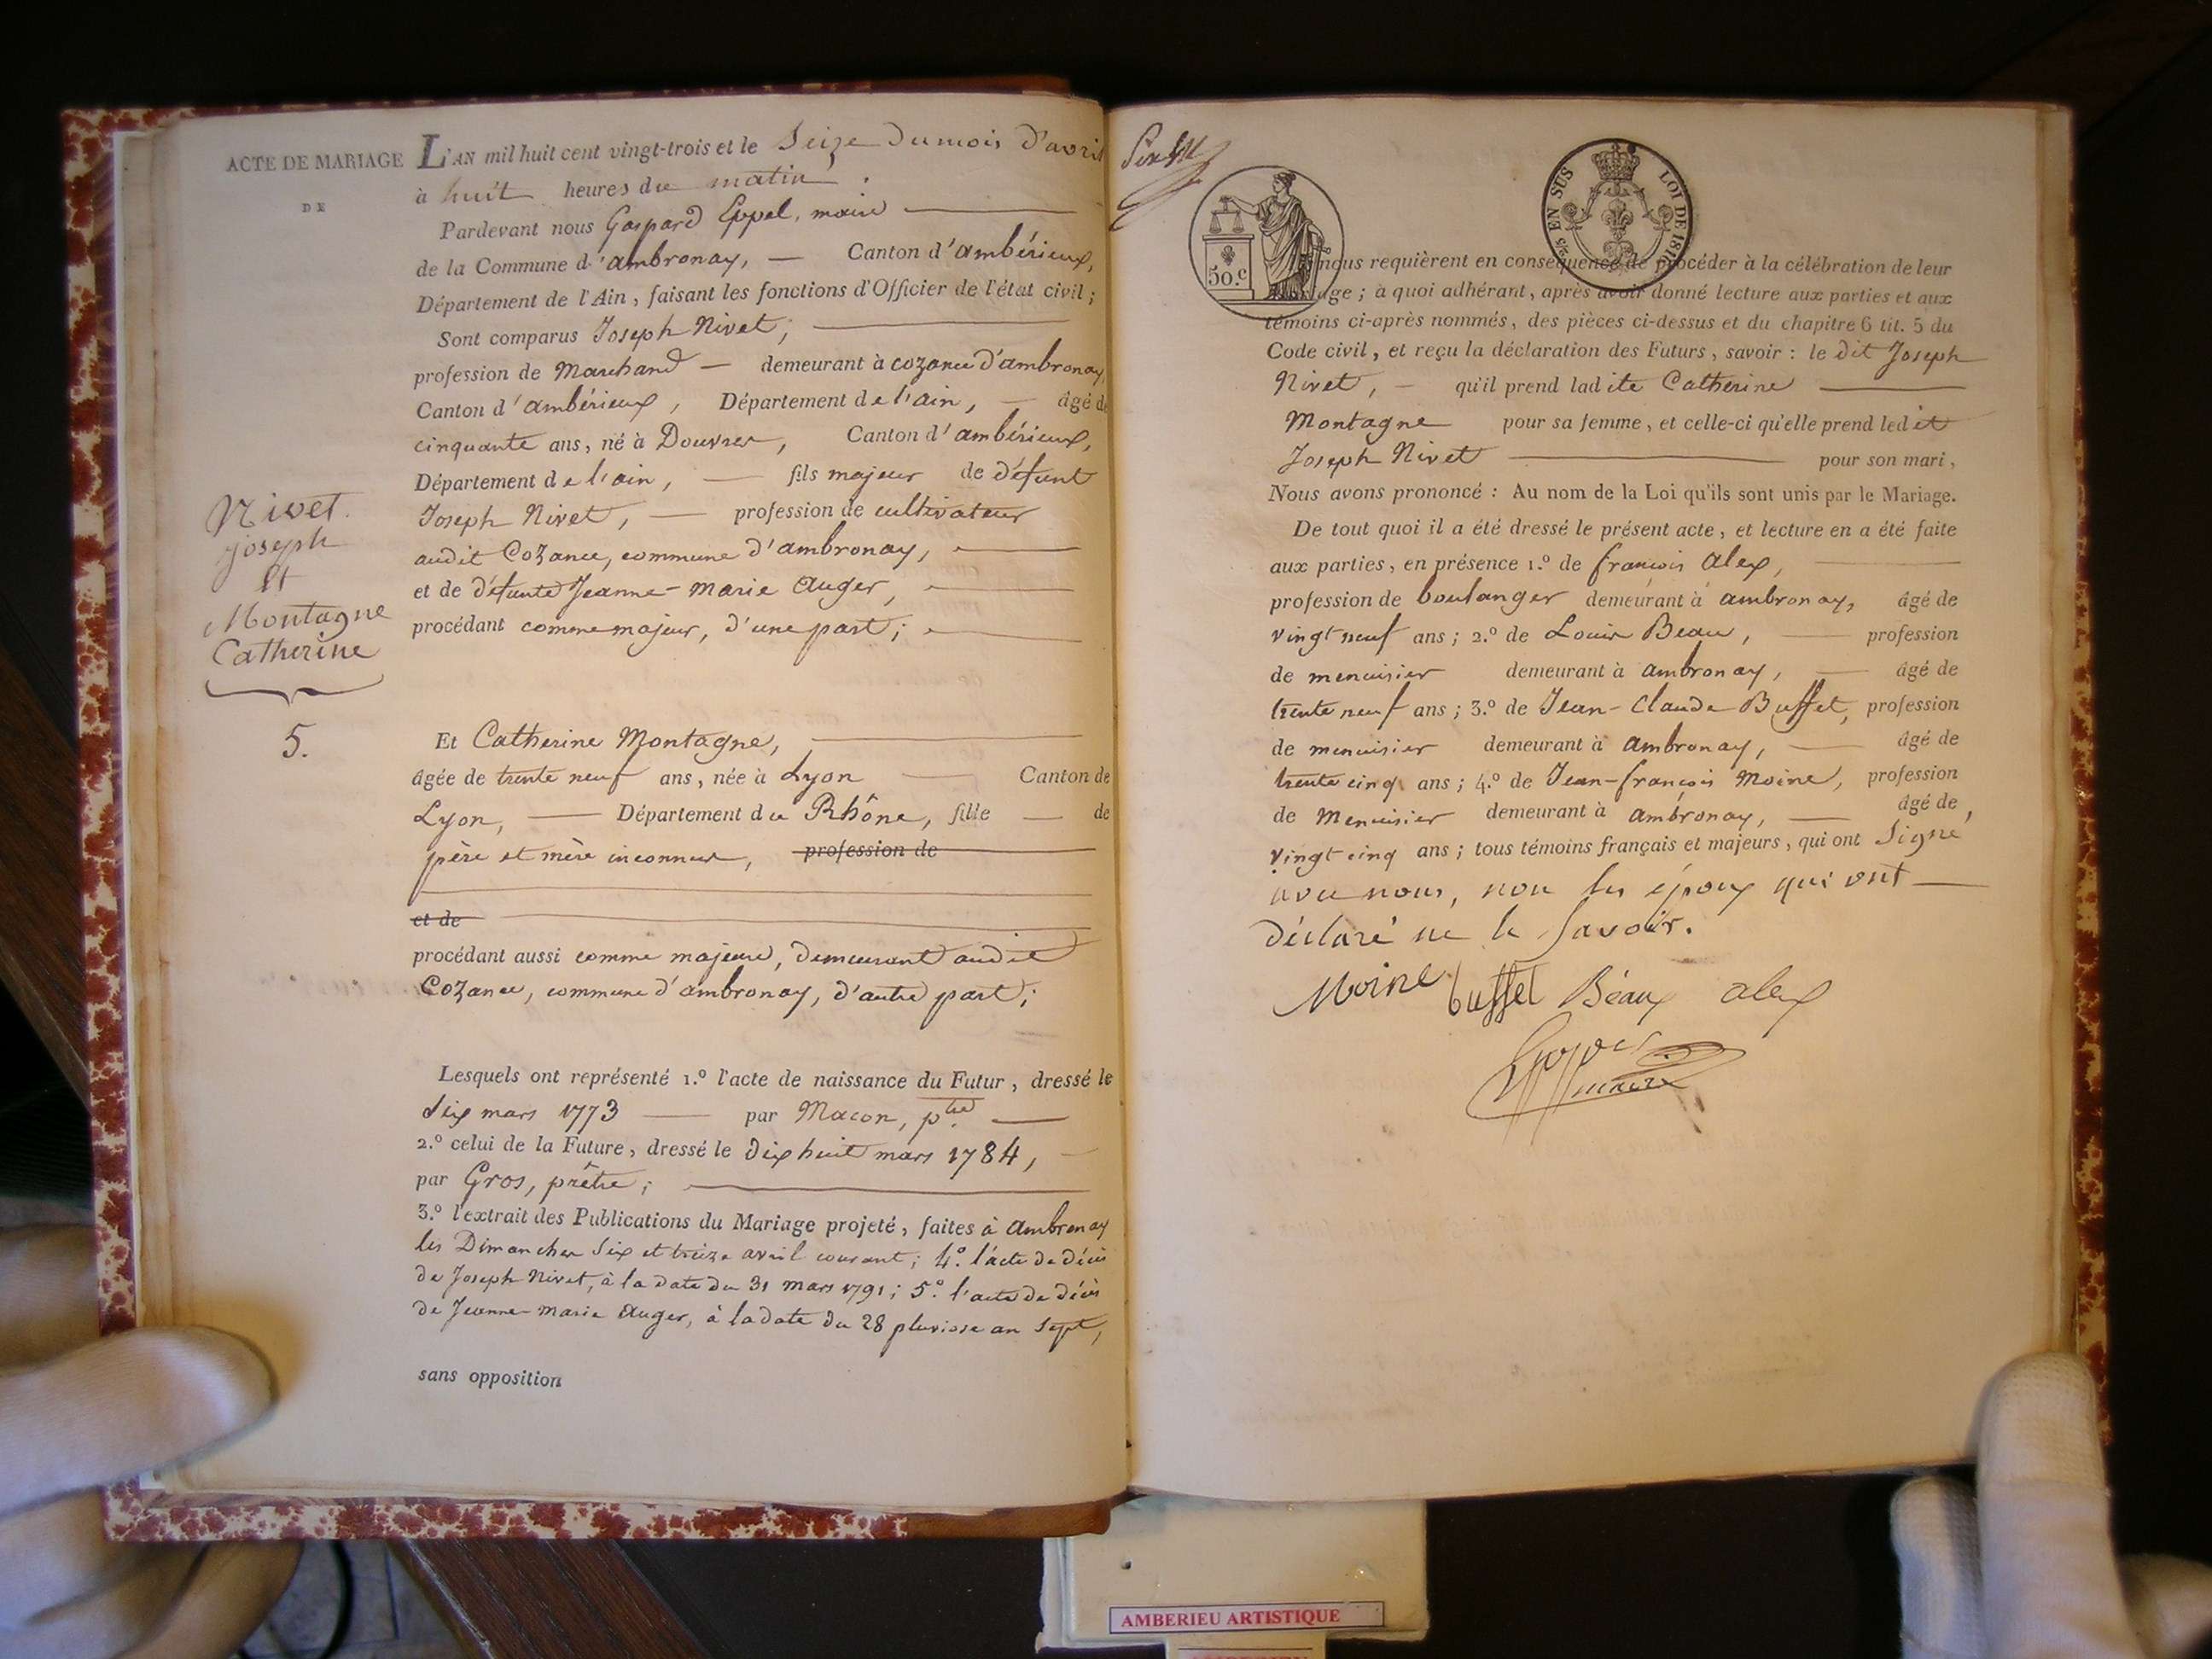 ACTE DE MARIAGE
DE
Nivet
joseph
et
Montagne
Catherine
5.
L'AN mil huit cent vingt-trois et le Seize du mois d'avril
à huit heures du matin.
Pardevant nous Gaspard Eppel, maire
de la Commune d'ambronay, — Canton d'ambérieux,
Département de l'Ain, faisant les fonctions d'Officier de l'état civil;
Sont comparus Joseph Nivet,
profession de Marchand — demeurant à cozance d'ambronay,
Canton d'ambérieux, Département de l'ain, — âgé de
cinquante ans, né à Douvres, Canton d'ambérieux,
Département de l'ain, — fils majeur de défunt
Joseph Nivet, — profession de cultivateur
audit Cozance, commune d'ambronay,
et de défunte Jeanne-marie Auger,
procédant comme majeur, d'une part;
Et Catherine Montagne,
âgée de trente neuf ans, née à Lyon — Canton de
Lyon, — Département du Rhône, fille — de
père et mère inconnus, profession de
et de
procédant aussi comme majeure, demeurant audit
Cozance, commune d'ambronay, d'autre part;
Lesquels ont représenté 1.º l'acte de naissance du Futur, dressé le
Six mars 1773 — par Macon, ptre —
2.º celui de la Future, dressé le dix huit mars 1784,
par Gros, prêtre;
3.º l'extrait des Publications du Mariage projeté, faites à ambronay
les Dimanches Six et treize avril courant; 4.º l'acte de décès
de Joseph Nivet, à la date du 31 mars 1791; 5.º l'acte de décès
de Jeanne-marie Auger, à la date du 28 pluviose an sept,
sans opposition
50.c
5/2 EN SUS LOI DE 1816
nous requièrent en conséquence de procéder à la célébration de leur
mariage; à quoi adhérant, après avoir donné lecture aux parties et aux
témoins ci-après nommés, des pièces ci-dessus et du chapitre 6 tit. 5 du
Code civil, et reçu la déclaration des Futurs, savoir: le dit Joseph
Nivet, — qu'il prend ladite Catherine
Montagne pour sa femme, et celle-ci qu'elle prend ledit
Joseph Nivet pour son mari,
Nous avons prononcé: Au nom de la Loi qu'ils sont unis par le Mariage.
De tout quoi il a été dressé le présent acte, et lecture en a été faite
aux parties, en présence 1.º de françois Alex,
profession de boulanger demeurant à ambronay, âgé de
vingt neuf ans; 2.º de Louis Beau, — profession
de menuisier demeurant à ambronay, — âgé de
trente neuf ans; 3.º de Jean-Claude Buffet, profession
de menuisier demeurant à ambronay, — âgé de
trente cinq ans; 4.º de Jean-françois Moine, profession
de Menuisier demeurant à ambronay, — âgé de
vingt cinq ans; tous témoins français et majeurs, qui ont Signé
avec nous, non les époux qui ont —
déclaré ne le Savoir.
Moine buffet Béaux alex
maire
AMBERIEU ARTISTIQUE